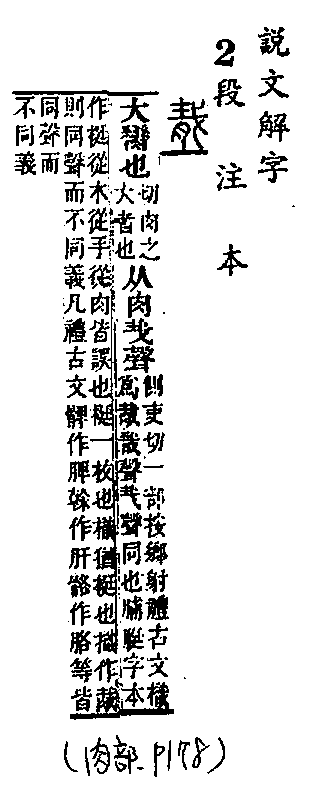 說文解字
2段注本
胾
大臠也切肉之大者也从肉𢦏聲側吏切一部按鄉射禮古文樴
爲胾𢦏聲戠聲同也脯脡字本
作梃從木從手從肉皆誤也梃一枚也樴猶梃也樴作胾
則同聲而不同義凡禮古文髀作脾作肝骼作胳等皆
同聲而
不同義
(肉部.P178)